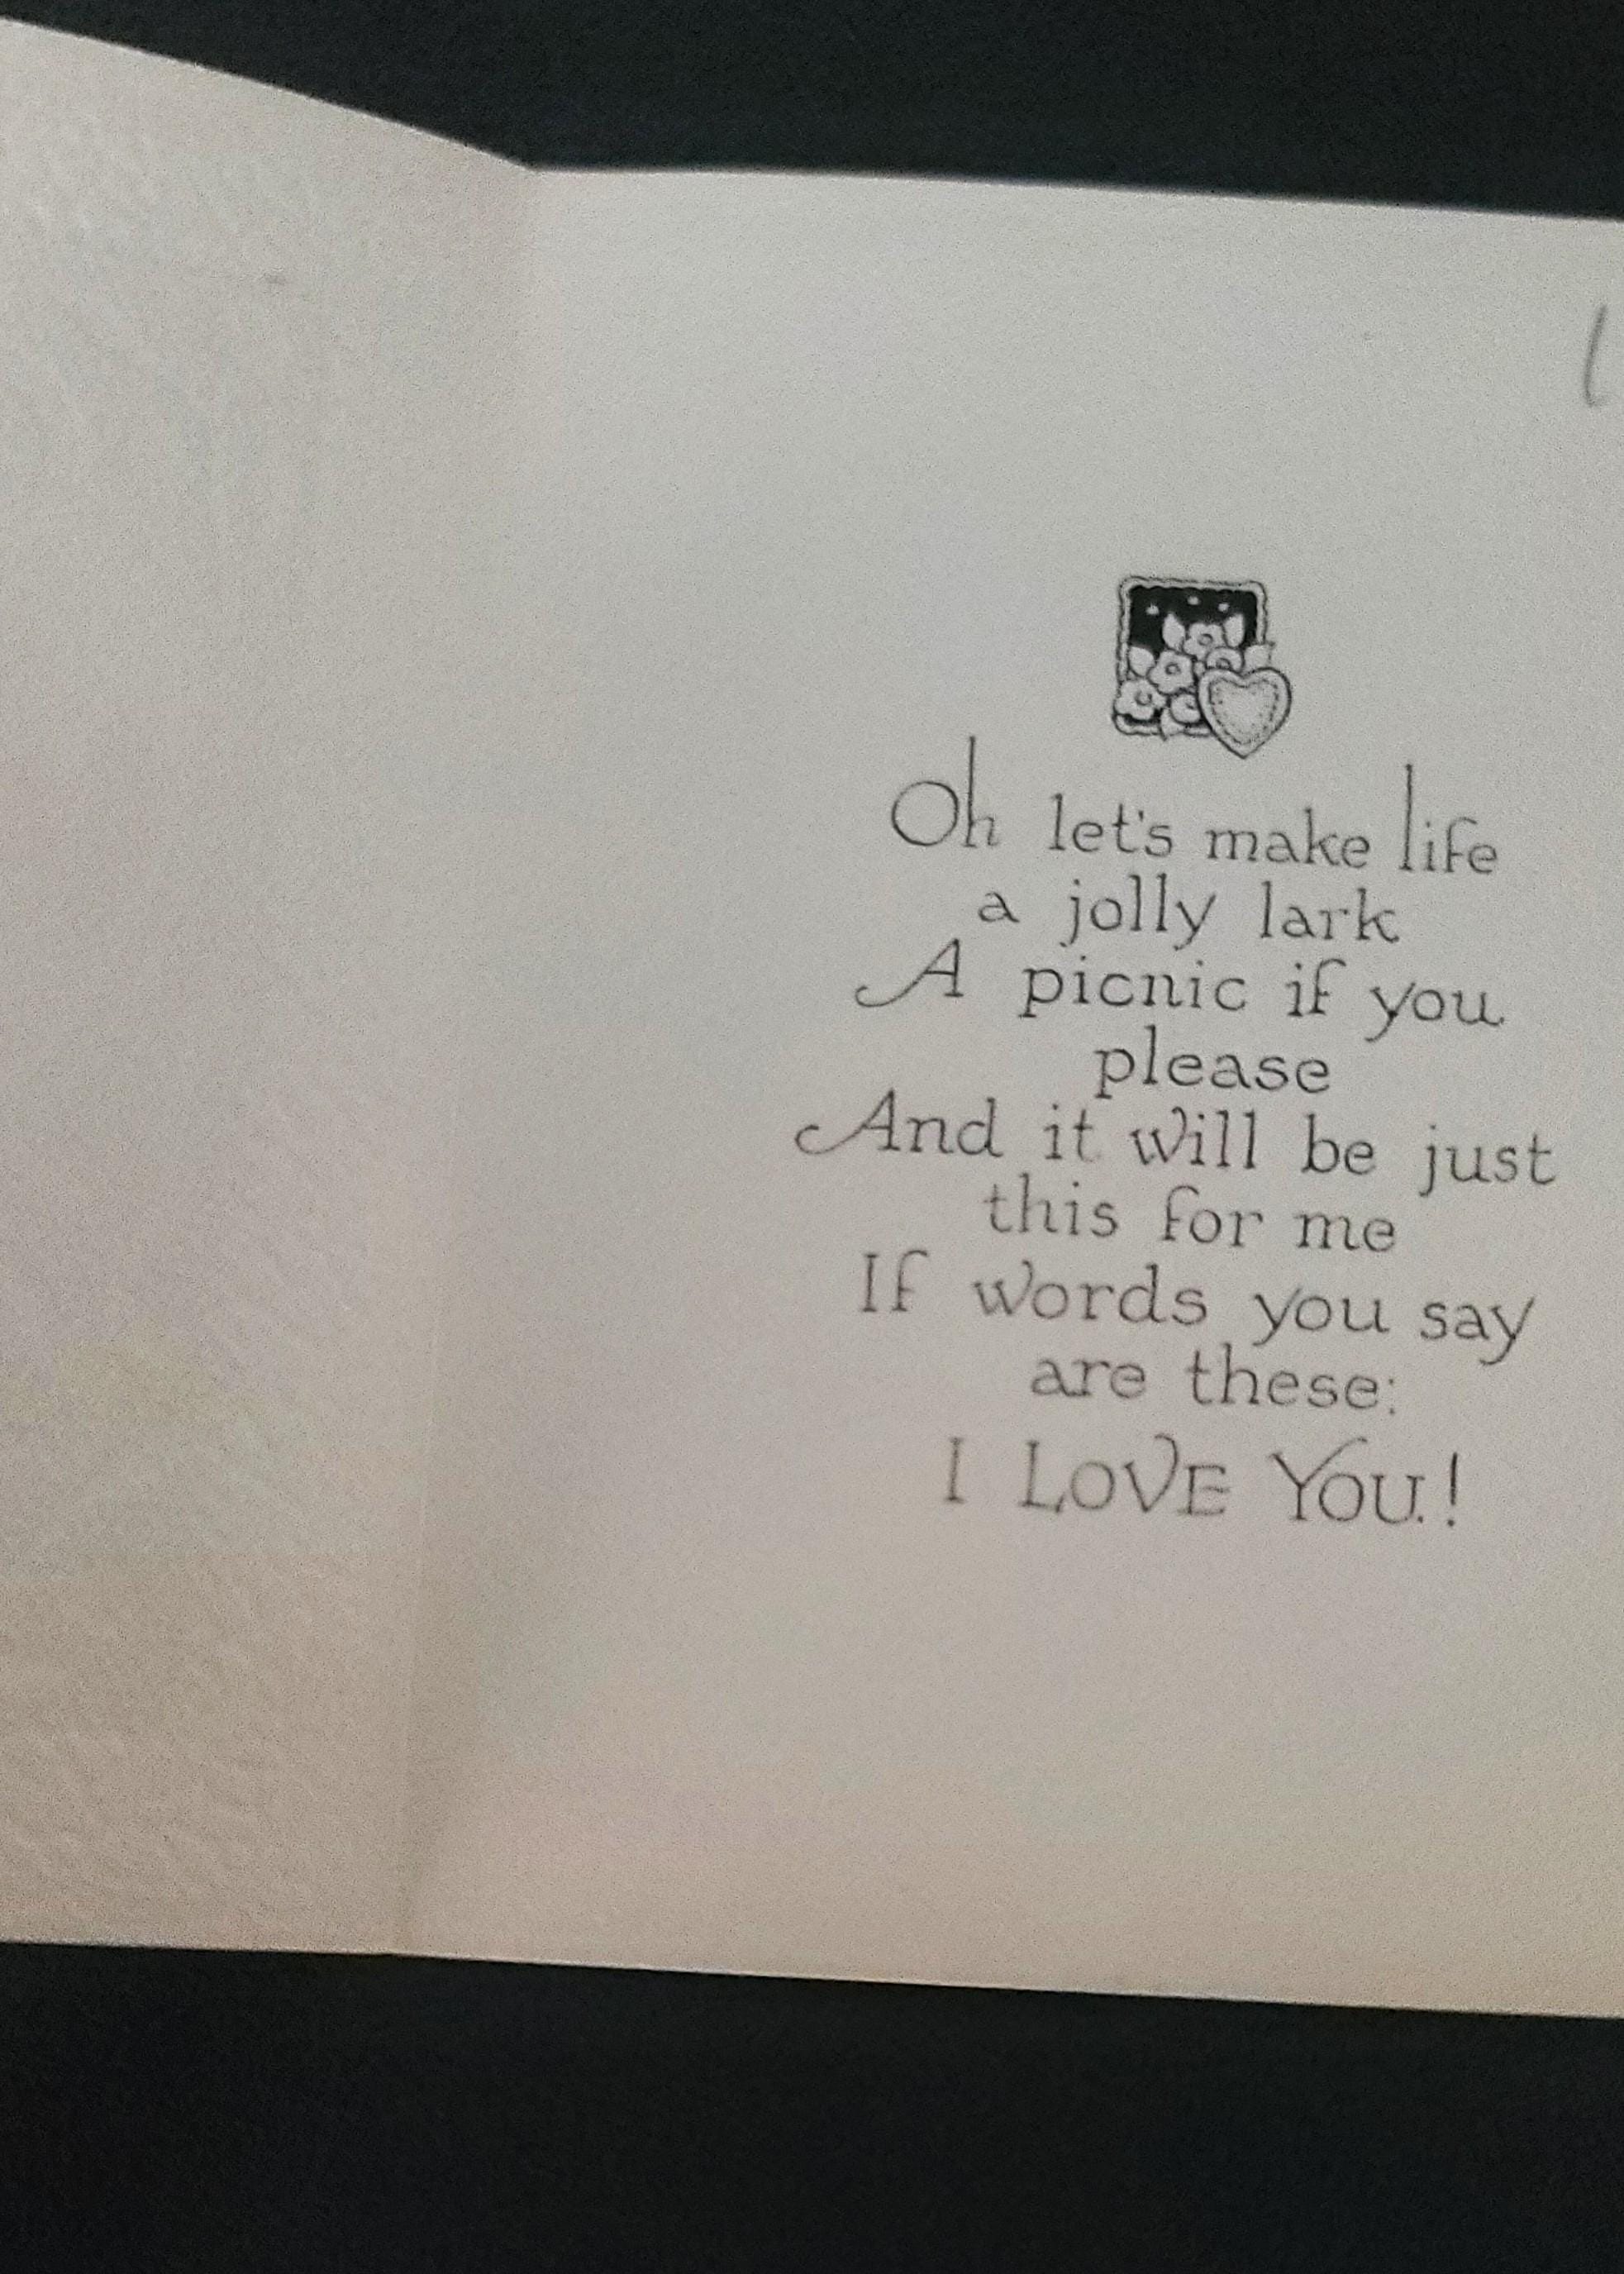 Oh let's make life
a jolly lark
A picnic if you
please
And it will be just
this for me
If words you say
are these:
I LOVE YOU!